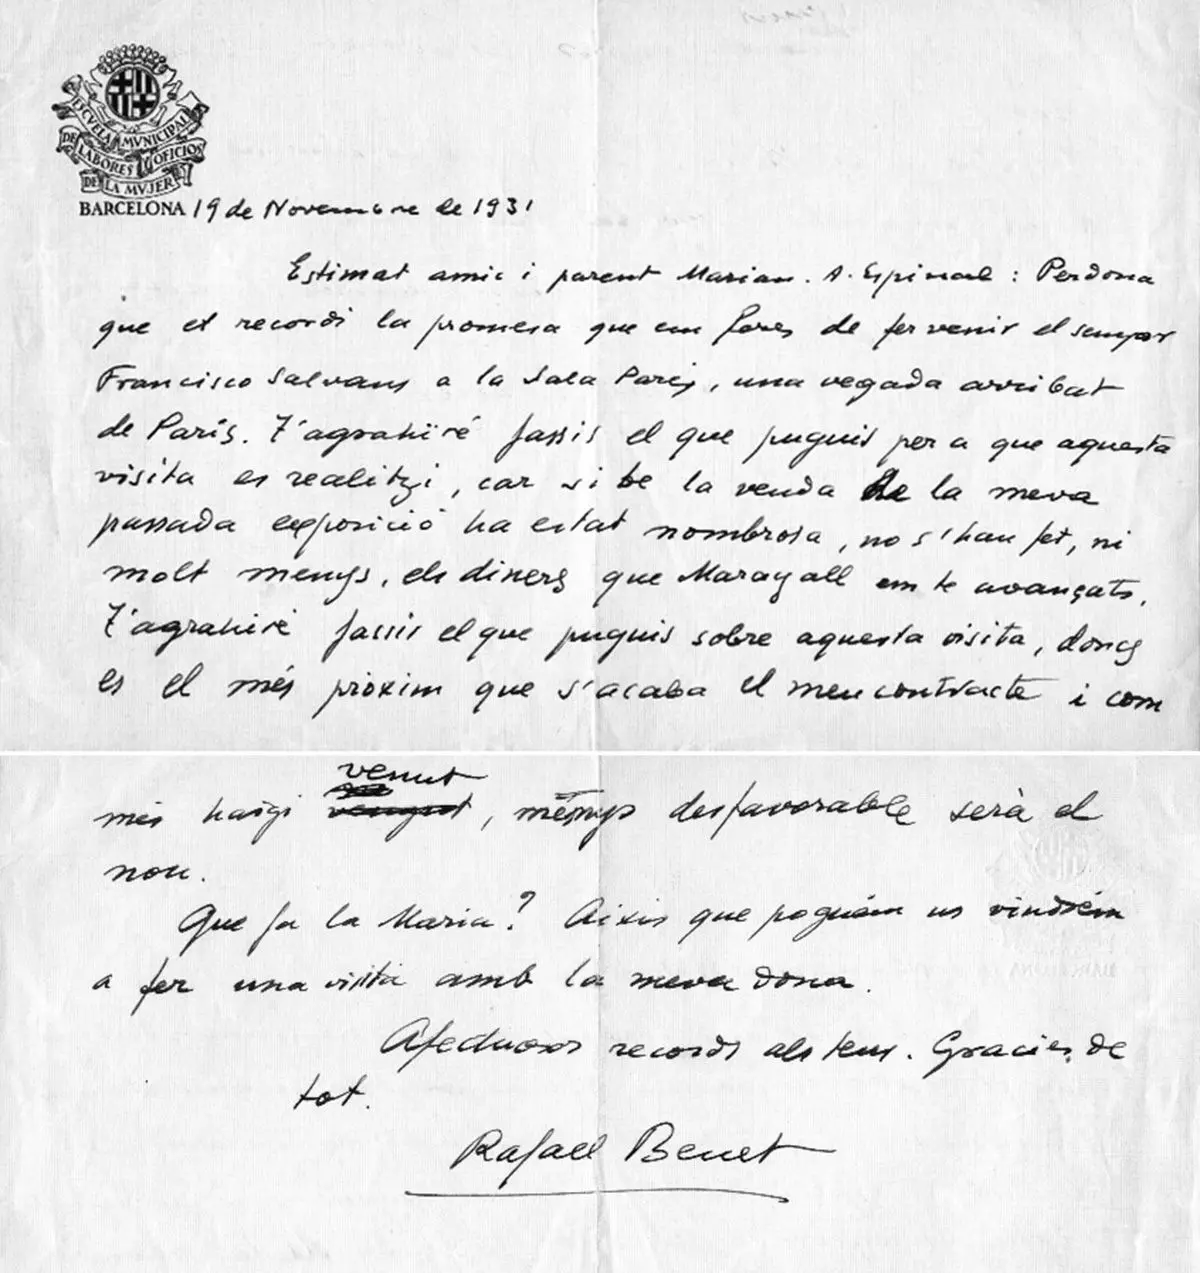 ESCUELA MVNICIPAL
DE LABORES Y OFICIOS
DE LA MVJER
BARCELONA 19 de Novembre de 1931
Estimat amic i parent Marian. A. Espinal : Perdona
que et recordi la promesa que em fores de fer venir el senyor
Francisco Salvans a la Sala Parés, una vegada arribat
de París. T'agrahiré fassis el que puguis per a que aquesta
visita es realitzi, car si be la venda de la meva
passada exposició ha estat nombrosa, no s'han fet, ni
molt menys, els diners que Maragall em te avançats.
T'agrahiré fassis el que puguis sobre aquesta visita, doncs
es el més pròxim que s'acaba el meu contracte i com
més haigi venut, menys desfavorable serà el
nou.
Que fa la Maria? Aixis que poguém us vindrém
a fer una visita amb la meva dona.
Afectuosos records als teus. Gracies de
tot.
Rafael Benet